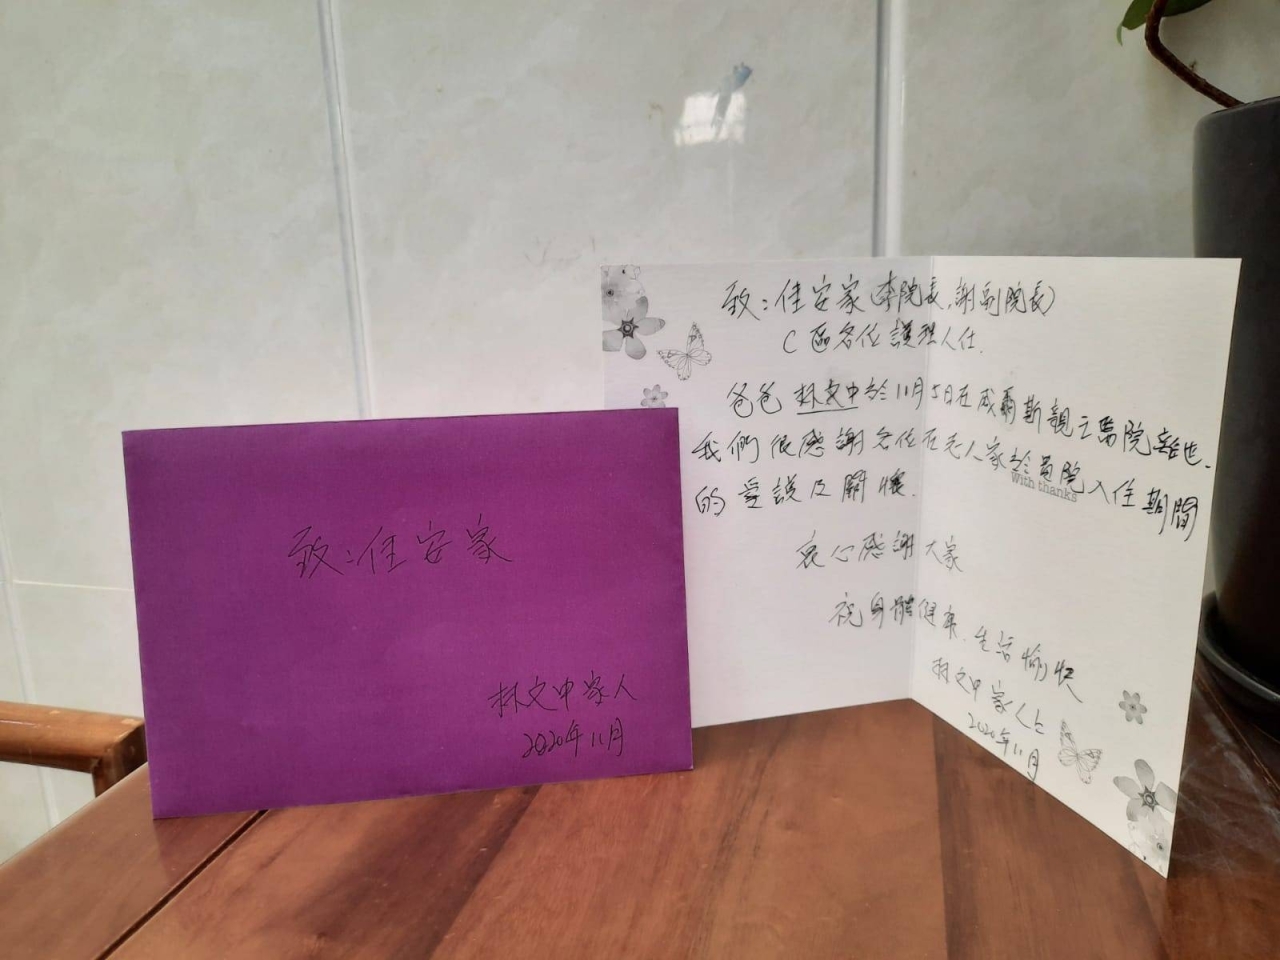 致：佳安家
林文中家人
2020年11月
致：佳安家(李院長.謝副院長)
C區各位護理人仕.
爸爸林文中於11月5日在威爾斯親王醫院離世.
我們很感謝各位在老人家於貴院入住期間
的愛護及關懷.
With thanks
衷心感謝大家
祝身體健康.生活愉快
林文中家人上
2020年11月